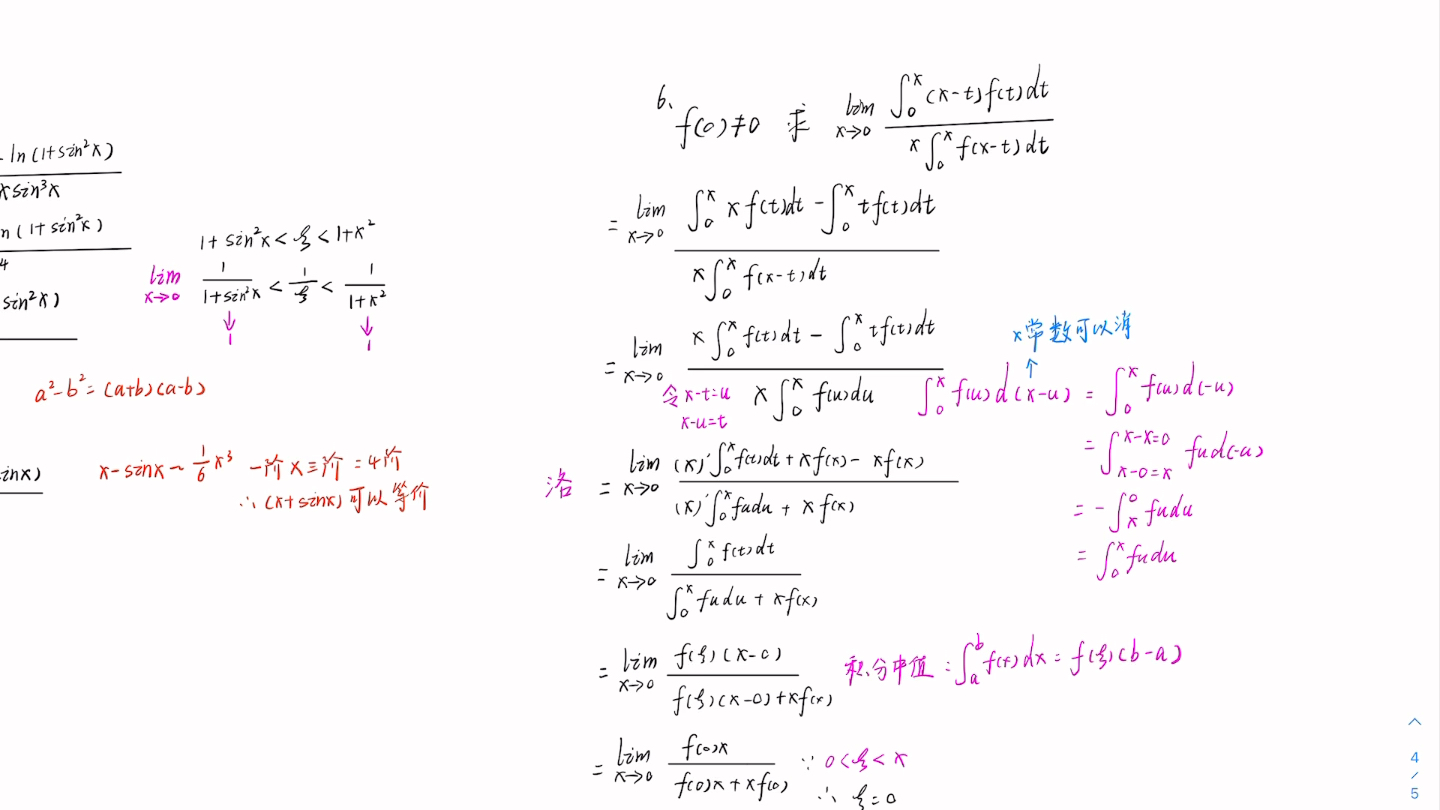 ln(1+sin²x)
x sin³x
n(1+sin²x)
4
sin²x)
1+sin²x < ξ < 1+x²
lim x→0 1/(1+sin²x) < 1/ξ < 1/(1+x²)
↓ ↓
1 1
a²-b²=(a+b)(a-b)
sinx)
x-sinx ~ 1/6 x³ 一阶×三阶=4阶
∴(x+sinx)可以等价
6、 f(0)≠0 求 lim x→0 ∫₀ˣ(x-t)f(t)dt / x∫₀ˣf(x-t)dt
= lim x→0 (∫₀ˣ x f(t)dt - ∫₀ˣ t f(t)dt) / x∫₀ˣ f(x-t)dt
x常数可以消
↑
= lim x→0 (x∫₀ˣ f(t)dt - ∫₀ˣ t f(t)dt) / x∫₀ˣ f(u)du
令x-t=u
x-u=t
∫₀ˣ f(u)d(x-u) = ∫₀ˣ f(u)d(-u)
= ∫_{x-0=x}^{x-x=0} fud(-u)
= -∫ₓ⁰ fudu
= ∫₀ˣ fudu
洛 = lim x→0 ((x)'∫₀ˣ f(t)dt + xf(x) - xf(x)) / ((x)'∫₀ˣ fudu + xf(x))
= lim x→0 ∫₀ˣ f(t)dt / (∫₀ˣ fudu + xf(x))
= lim x→0 f(ξ)(x-0) / (f(ξ)(x-0)+xf(x))
积分中值:∫ₐᵇ f(x)dx = f(ξ)(b-a)
= lim x→0 f(0)x / (f(0)x+xf(0))
∵ 0<ξ<x
∴ ξ=0
4/5